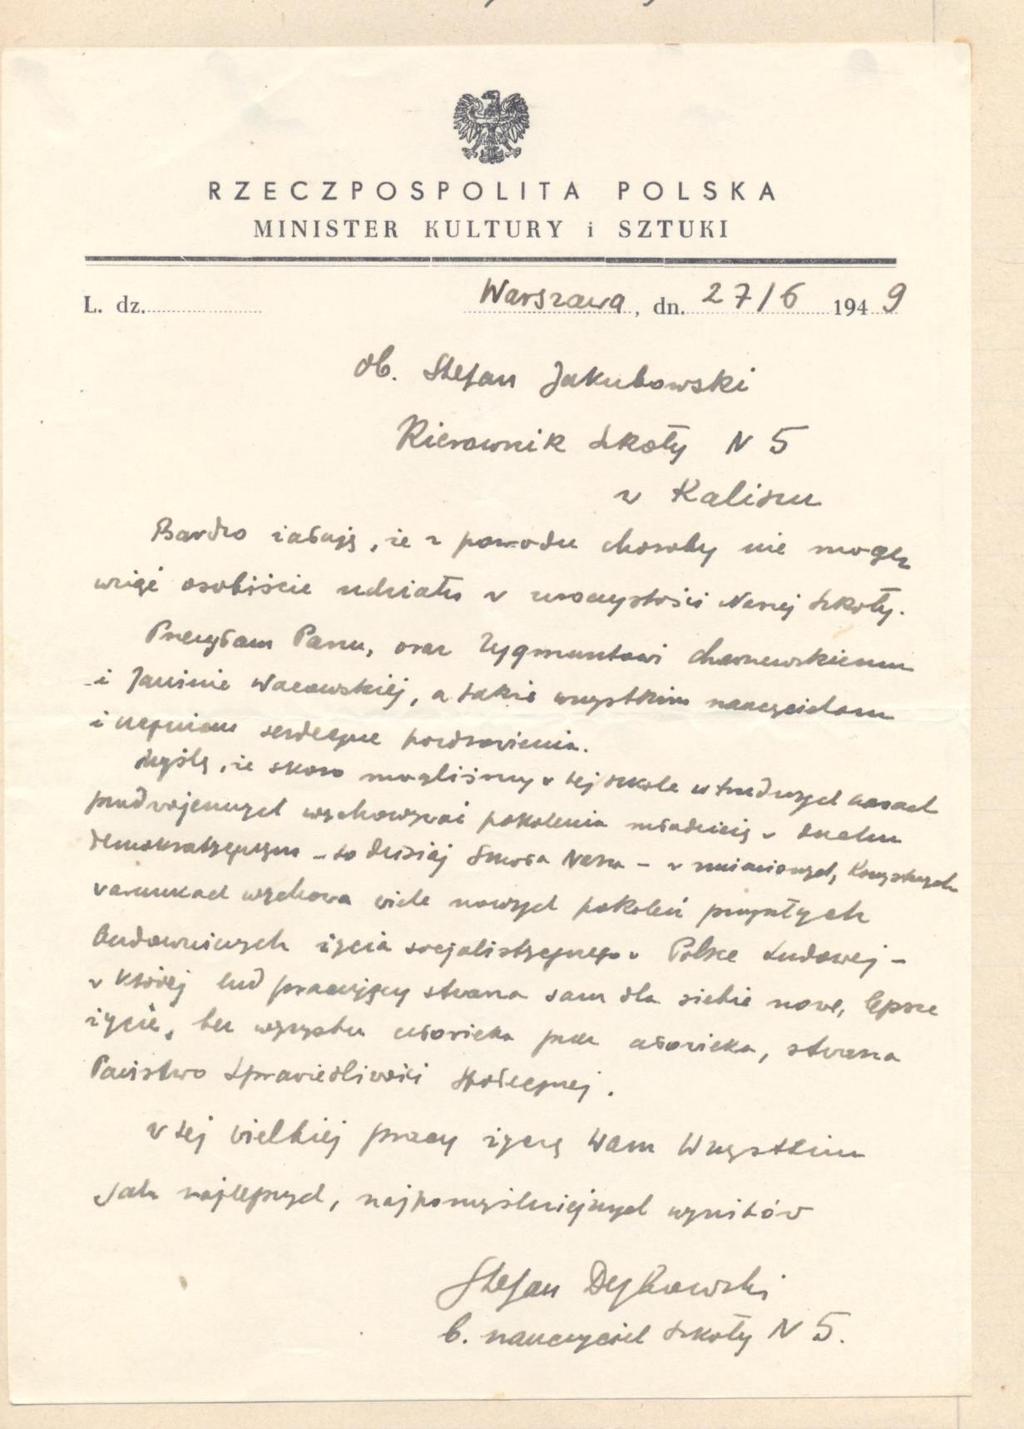 RZECZPOSPOLITA POLSKA
MINISTER KULTURY i SZTUKI
L. dz. Warszawa, dn. 27/6 1949
Ob. Stefan Jakubowski
Kierownik Szkoły N 5
w Kaliszu
Bardzo żałuję, że z powodu choroby nie mogę
wziąć osobiście udziału w uroczystości Naszej Szkoły.
Przesyłam Panu, oraz Zygmuntowi
i Janinie, a także wszystkim nauczycielom
i uczniom serdeczne pozdrowienia.
Myślę, że skoro mogliśmy w tej szkole w trudnych czasach
przedwojennych wychowywać pokolenia młodzieży w duchu
demokratycznym – to dzisiaj Szkoła Nasza – w zmienionych, korzystnych
warunkach wychowa wiele nowych pokoleń przyszłych
budowniczych życia socjalistycznego w Polsce Ludowej –
w której lud pracujący stwarza sam dla siebie nowe, lepsze
życie, bez wyzysku człowieka przez człowieka, stwarza
Państwo Sprawiedliwości Społecznej.
W tej wielkiej pracy życzę Wam Wszystkim
jak najlepszych, najpomyślniejszych wyników
Stefan Dybowski
b. nauczyciel Szkoły N 5.